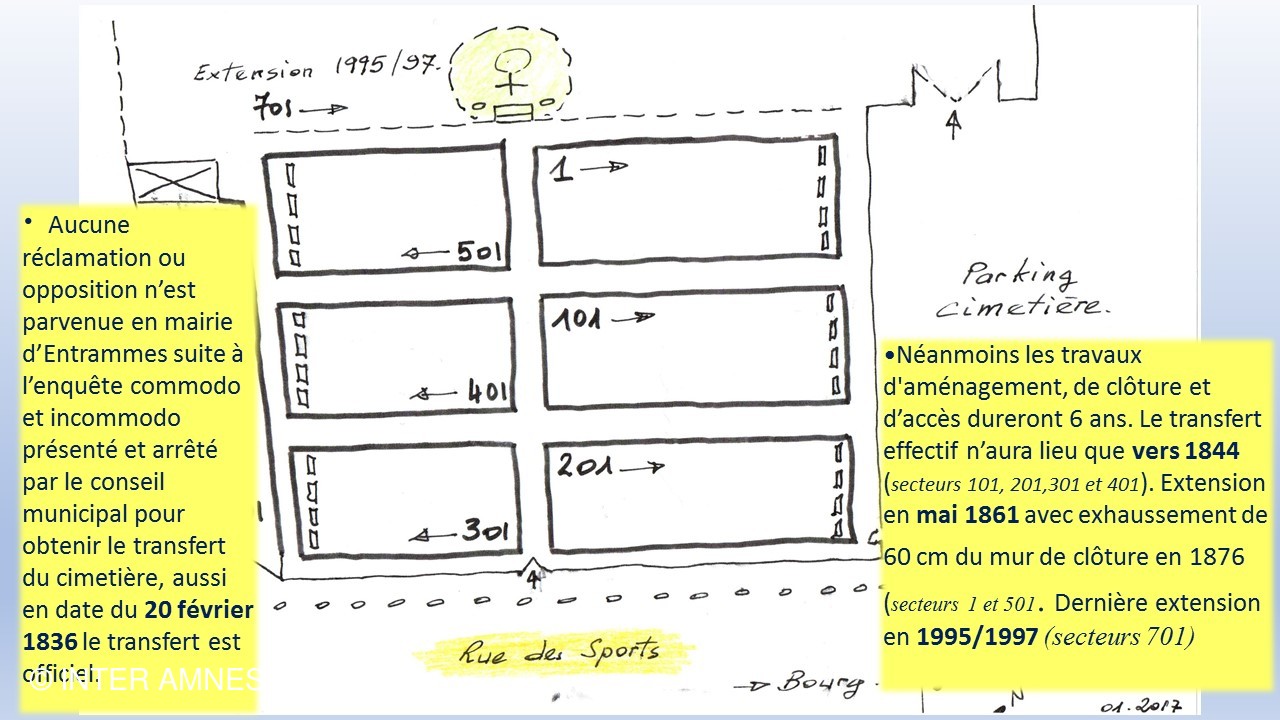 Extension 1995/97.
701 →
1 →
← 501
101 →
← 401
201 →
← 301
Parking
Cimetière.
Rue des Sports
→ Bourg.
N
01.2017
• Aucune
réclamation ou
opposition n’est
parvenue en mairie
d’Entrammes suite à
l’enquête commodo
et incommodo
présenté et arrêté
par le conseil
municipal pour
obtenir le transfert
du cimetière, aussi
en date du 20 février
1836 le transfert est
officiel.
© INTER AMNES
•Néanmoins les travaux
d'aménagement, de clôture et
d’accès dureront 6 ans. Le transfert
effectif n’aura lieu que vers 1844
(secteurs 101, 201,301 et 401). Extension
en mai 1861 avec exhaussement de
60 cm du mur de clôture en 1876
(secteurs 1 et 501. Dernière extension
en 1995/1997 (secteurs 701)